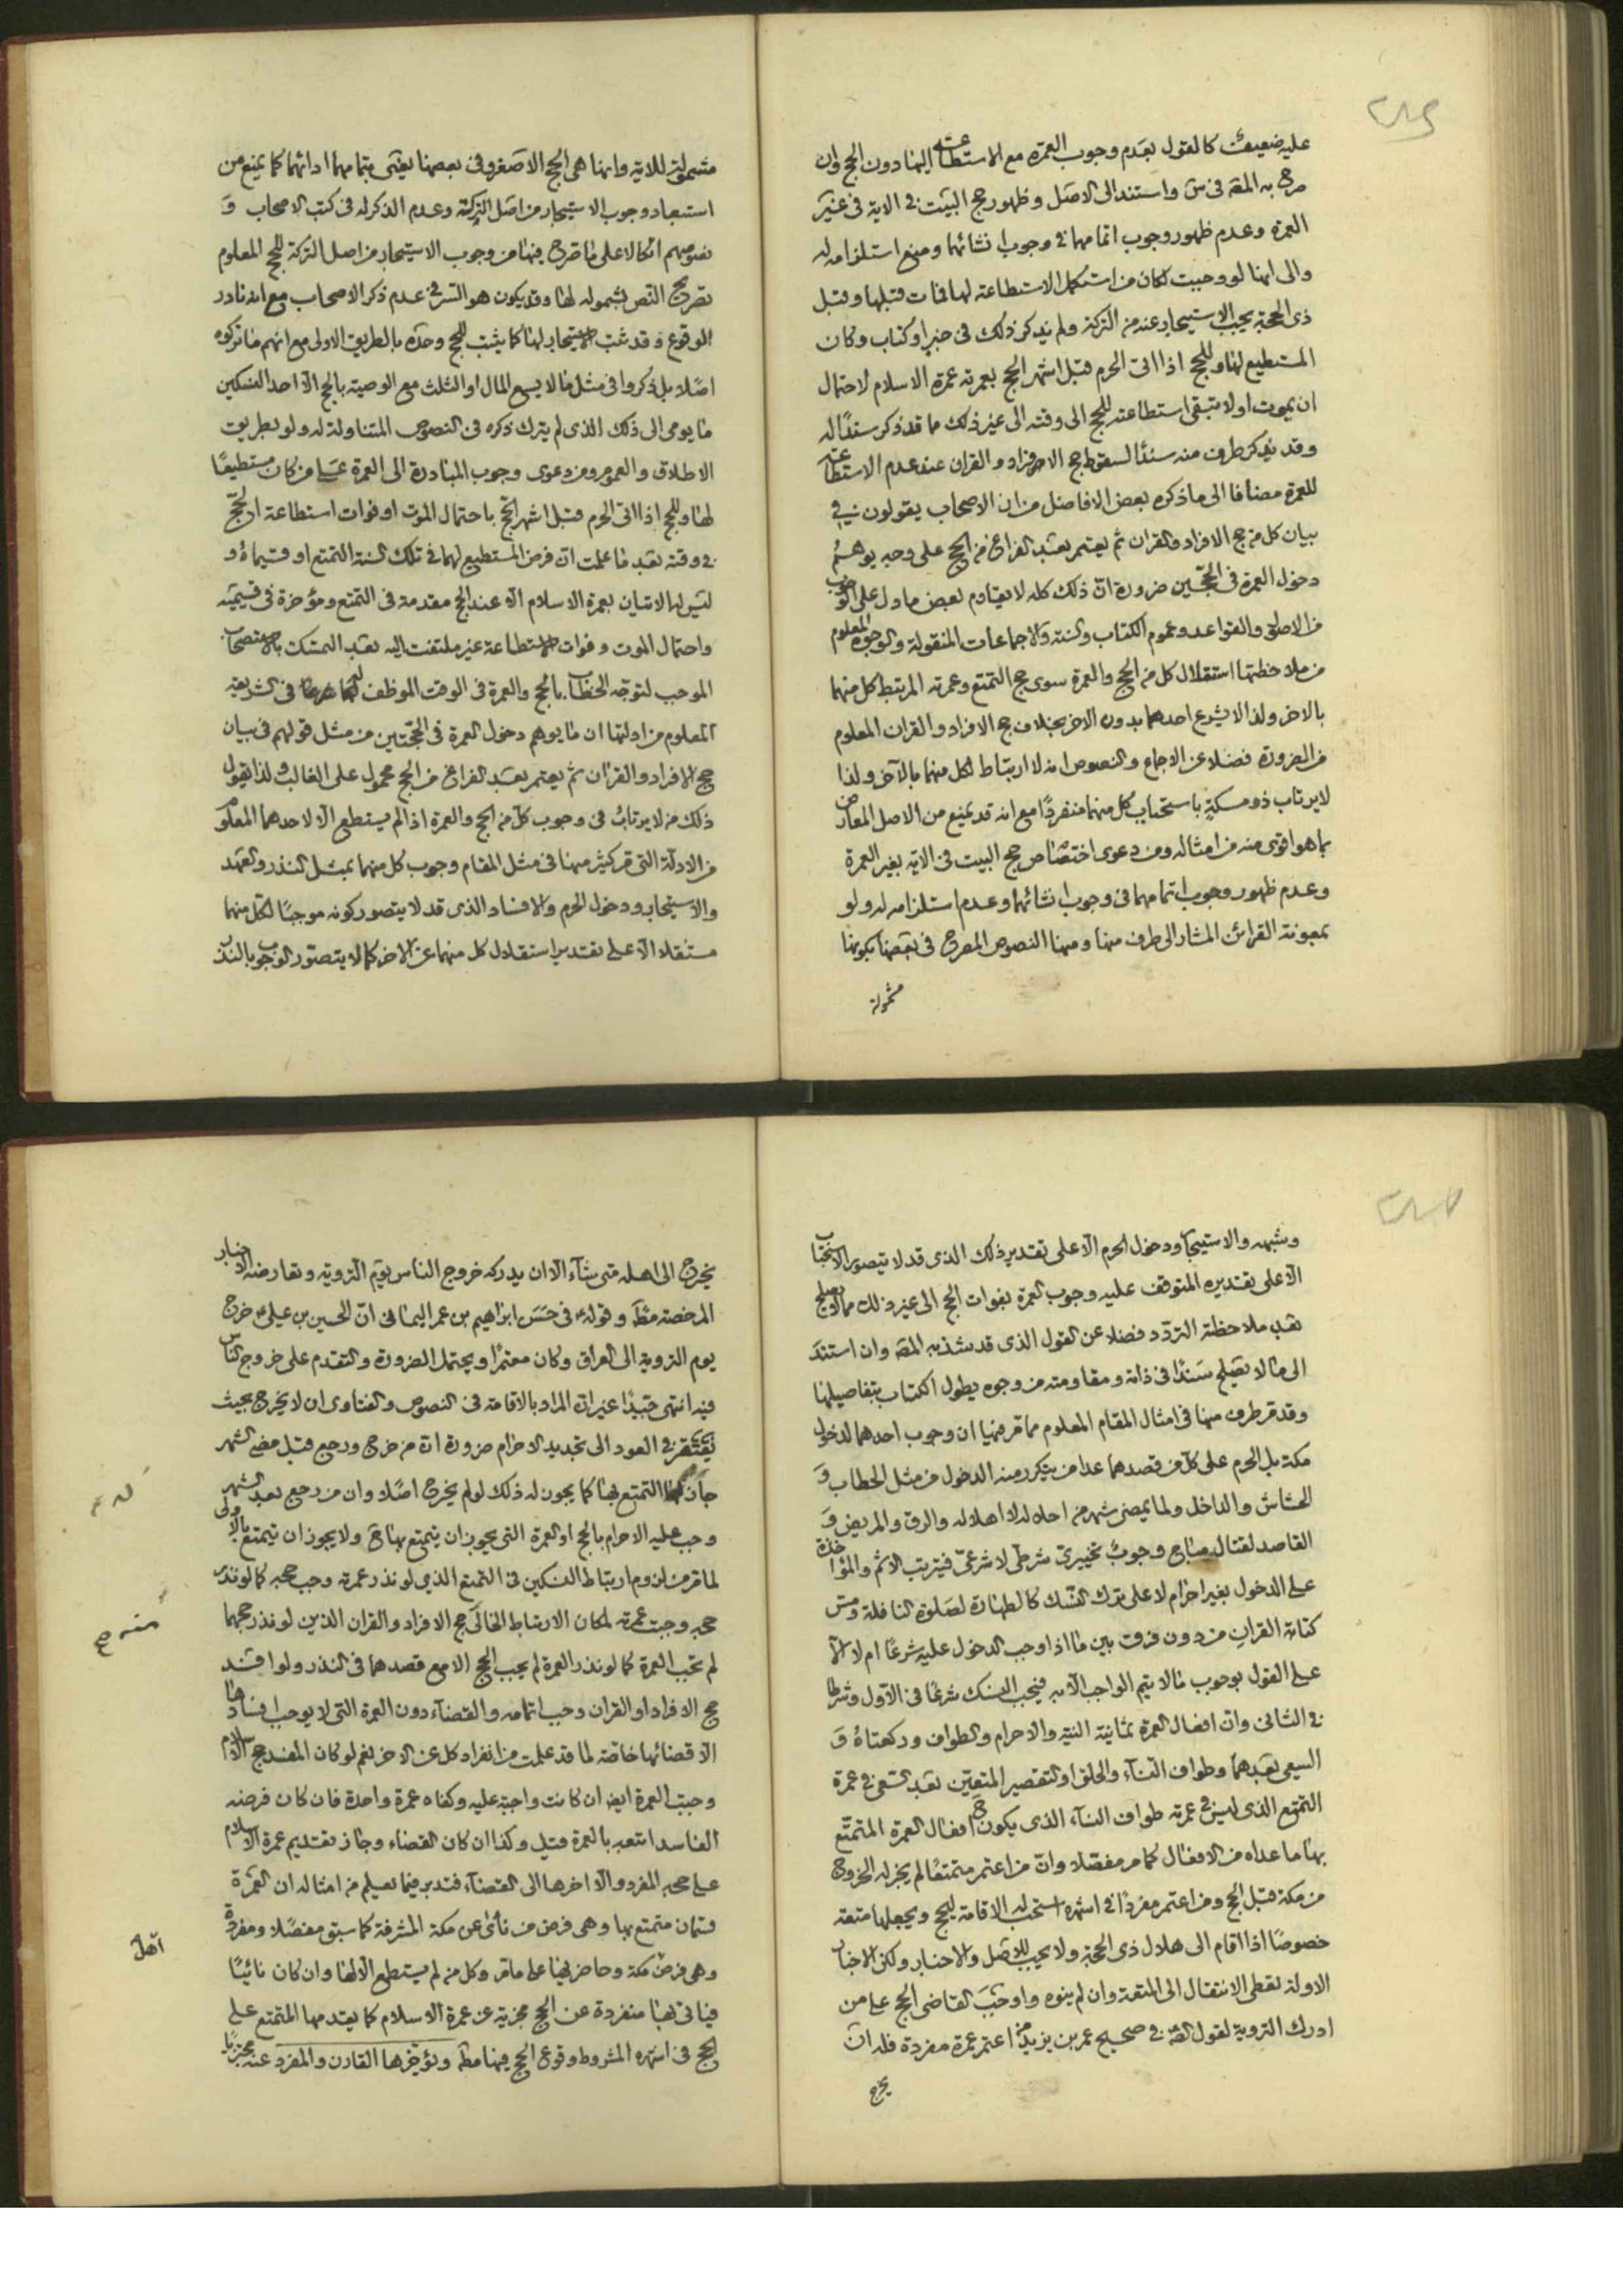 عليه ضعيف كالقول بعدم وجوب العمرة مع الاستطاعة اليها دون الحج وان
صرح به المقه في ش واستند الى الاصل وظهور حج البيت في الاية في غير
العمرة وعدم ظهور وجوب اتمامها في وجوب انشائها ومنع استلزامه له
والى انها لو وجبت لكان من استكمل الاستطاعة لها فمات قبلها وقبل
ذى الحجة يجب الاستيجار عنه من التركة ولم يذكر ذلك في خبر او كتاب وكان
المستطيع لها وللحج اذا اتى الحرم قبل اشهر الحج بعمرته عمرة الاسلام لاحتمال
ان يموت او لا تبقى استطاعته للحج الى وقته الى غير ذلك مما قد ذكر سندا له
وقد يذكر طرف منه سندا لسقوط حج الافراد والقران عند عدم الاستطاعة
للعمرة مضافا الى ما ذكره بعض الافاضل من ان الاصحاب يقولون في
بيان كل من حج الافراد والقران ثم يعتمر بعد الفراغ من الحج على وجه يوهم
دخول العمرة في الحجين ضرورة ان ذلك كله لا يقاوم بعض ما دل على الوجوب
من الاصل والقواعد وعموم الكتاب والسنة والاجماعات المنقولة والوجوه المعلوم
من ملاحظتها استقلال كل من الحج والعمرة سوى حج التمتع وعمرته المرتبط كل منهما
بالاخر ولذا لا يشرع احدهما بدون الاخر بخلاف حج الافراد والقران المعلوم
من الضرورة فضلا عن الاجماع والنصوص انه لا ارتباط لكل منهما بالآخر ولذا
لا يرتاب ذو مسكة باستحباب كل منهما منفردا مع انه قد يمنع من الاصل المعارض
بما هو اقوى منه من امثاله ومن دعوى اختصاص حج البيت في الاية بغير العمرة
وعدم ظهور وجوب اتمامها في وجوب انشائها وعدم استلزامه له ولو
بمعونة القرائن المشار الى طرف منها ومنها النصوص المصرح في بعضها بكونها
مشمولة
مشمولة للاية وانها هي الحج الاصغر وفي بعضها يعني بتمامهما ادائهما كما يمنع من
استبعاد وجوب الاستيجار من اصل التركة وعدم الذكر له في كتب الاصحاب و
نصوصهم اتكالا على ما صرح فيها من وجوب الاستيجار من اصل التركة للحج المعلوم
تصريح النص بشموله لها وقد يكون هو السر في عدم ذكر الاصحاب مع انه نادر
الوقوع وقد ثبت الاستيجار لها كما يثبت للحج وحده بالطريق الاولى مع انهم ما تركوه
اصلا بل ذكروا في مثل ما لا يسع المال او الثلث مع الوصية بالحج الا احد النسكين
ما يومى الى ذلك الذى لم يترك ذكره في النصوص المتناولة له ولو بطريق
الاطلاق والعموم ومن دعوى وجوب المبادرة الى العمرة على من كان مستطيعا
لها وللحج اذا اتى الحرم قبل اشهر الحج باحتمال الموت او فوات استطاعة الحج
في وقته بعد ما علمت ان فرض المستطيع لهما في تلك السنة التمتع او قسيماه و
ليس له الاتيان بعمرة الاسلام الا عند الحج مقدمة في التمتع ومؤخرة في قسيميه
واحتمال الموت وفوات الاستطاعة غير ملتفت اليه بعد التمسك بالاستصحاب
الموجب لتوجه الخطاب بالحج والعمرة في الوقت الموظف لهما في الشريعة
المعلوم من ادلتها ان ما يوهم دخول العمرة في الحجتين من مثل قولهم في بيان
حج الافراد والقران ثم يعتمر بعد الفراغ من الحج محمول على الغالب ولذا يقول
ذلك من لا يرتاب في وجوب كل من الحج والعمرة اذا لم يستطع الا لاحدهما المعلوم
من الادلة التي مر كثير منها في مثل المقام وجوب كل منهما بمثل النذر والعهد
والاستيجار ودخول الحرم والافساد الذى قد لا يتصور كونه موجبا لكل منهما
مستقلا الا على تقدير استقلال كل منهما عن الاخر كما لا يتصور الوجوب بالنذر
وشبهه والاستيجار ودخول الحرم الا على تقدير ذلك الذى قد لا يتصور الاستحباب
الا على تقديره المتوقف عليه وجوب العمرة بفوات الحج الى غير ذلك مما لا يصلح
بعد ملاحظته التردد فضلا عن القول الذى قد شذ به المقه وان استند
الى ما لا يصلح سندا في ذاته ومقاومته من وجوه يطول الكتاب بتفاصيلها
وقد مر طرف منها في امثال المقام المعلوم مما مر فيها ان وجوب احدهما لدخول
مكة بل الحرم على كل من قصدهما عدا من يتكرر منه الدخول من مثل الحطاب و
الحشاش والداخل ولما يمضى شهر من احلاله لا اهلاله والرق والمريض و
القاصد لقتال مباح وجوب تخييرى شرطى لا شرعى فيترتب الاثم والمؤاخذة
على الدخول بغير احرام لا على ترك النسك كالطهارة لصلوة النافلة ومس
كتابة القران من دون فرق بين ما اذا وجب الدخول عليه شرعا ام لا الا
على القول بوجوب ما لا يتم الواجب الا به فيجب النسك شرعا في الاول وشرطا
في الثانى وان افعال العمرة ثمانية النية والاحرام والطواف وركعتاه و
السعى بعدهما وطواف النساء والحلق او التقصير المتعين بعد السعى في عمرة
التمتع الذى ليس في عمرته طواف النساء الذى يكون في افعال العمرة المتمتع
بها ما عداه من الافعال كما مر مفصلا وان من اعتمر متمتعا لم يجز له الخروج
من مكة قبل الحج ومن اعتمر مفردا في اشهره استحب له الاقامة للحج ويجعلها متعة
خصوصا اذا اقام الى هلال ذى الحجة ولا يجب للاصل والاخبار ولكن الاخبار
الاولة تعطى الانتقال الى المتعة وان لم ينوه واوجب القاضى الحج على من
ادرك التروية لقول الصه في صحيح عمر بن يزيد من اعتمر عمرة مفردة فله ان
يخرج
يخرج الى اهله متى شاء الا ان يدركه خروج الناس يوم التروية وتعارضه الاخبار
المرخصة مط وقوله في حسن ابراهيم بن عمر اليمانى ان الحسين بن على خرج
يوم التروية الى العراق وكان معتمرا ويحتمل الضرورة والتقدم على خروج الناس
فيه انتهى جيدا غير ان المراد بالاقامة في النصوص والفتاوى ان لا يخرج بحيث
يفتقر في العود الى تجديد الاحرام ضرورة ان من خرج ورجع قبل مضى الشهر
جاز له التمتع بها كما يجوز له ذلك لو لم يخرج اصلا وان من رجع بعد الشهر
له
وجب عليه الاحرام بالحج او العمرة التى يجوز ان يتمتع بها ولا يجوز ان يتمتع بالاولى
لما مر من لزوم ارتباط النسكين في التمتع الذى لو نذر عمرته وجب حجه كما لو نذر
حجه وجبت عمرته لمكان الارتباط الخالى حج الافراد والقران الذين لو نذر حجهما
منه
لم تجب العمرة كما لو نذر العمرة لم يجب الحج الا مع قصدهما في النذر ولو افسد
حج الافراد او القران وجب اتمامه والقضاء دون العمرة التى لا يوجب افسادها
الا قضائها خاصة لما قد علمت من انفراد كل عن الاخر نعم لو كان المفسد حج الاسلام
وجبت العمرة ايضا ان كانت واجبة عليه وكفاه عمرة واحدة فان كان فرضه
الفاسد اتبعه بالعمرة قبل وكذا ان كان القضاء وجاز تقديم عمرة الاسلام
على حجه المفرد والا اخرها الى القضاء فتدبر فيما يعلم من امثاله ان العمرة
قسمان متمتع بها وهى فرض من نأى عن مكة المشرفة كما سبق مفصلا ومفردة
وهى فرض مكة وحاضريها على ما مر وكل من لم يستطع الا لها وان كان نائيا
اهل
فياتى بها منفردة عن الحج مجزية عن عمرة الاسلام كما يقدمها المتمتع على
الحج في اشهره المشروط وقوع الحج فيها مط ويؤخرها القارن والمفرد عنه مجتزيا